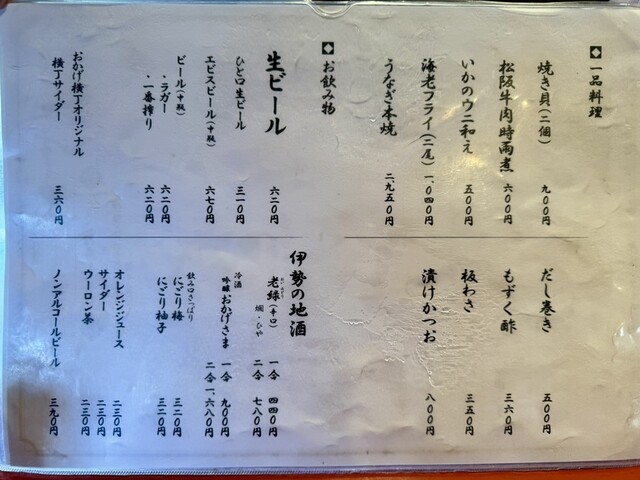 ◆一品料理
焼き貝(二個) 九〇〇円
松阪牛肉時雨煮 六〇〇円
いかのウニ和え 五〇〇円
海老フライ(二尾) 一、〇四〇円
うなぎ本焼 二、九五〇円
だし巻き 五〇〇円
もずく酢 三六〇円
板わさ 三五〇円
漬けかつお 八〇〇円
◆お飲み物
生ビール 六二〇円
ひと口生ビール 三一〇円
エビスビール(中瓶) 六七〇円
ビール(中瓶)
・ラガー 六二〇円
・一番搾り 六二〇円
おかげ横丁オリジナル
横丁サイダー 三六〇円
伊勢の地酒
老緑(辛口) 一合 四四〇円
燗・ひや 二合 七八〇円
冷酒
吟醸おかげさま 一合 九〇〇円
二合 一、六八〇円
飲み口さっぱり
にごり梅 三二〇円
にごり柚子 三二〇円
オレンジジュース 二三〇円
サイダー 二三〇円
ウーロン茶 二三〇円
ノンアルコールビール 三九〇円